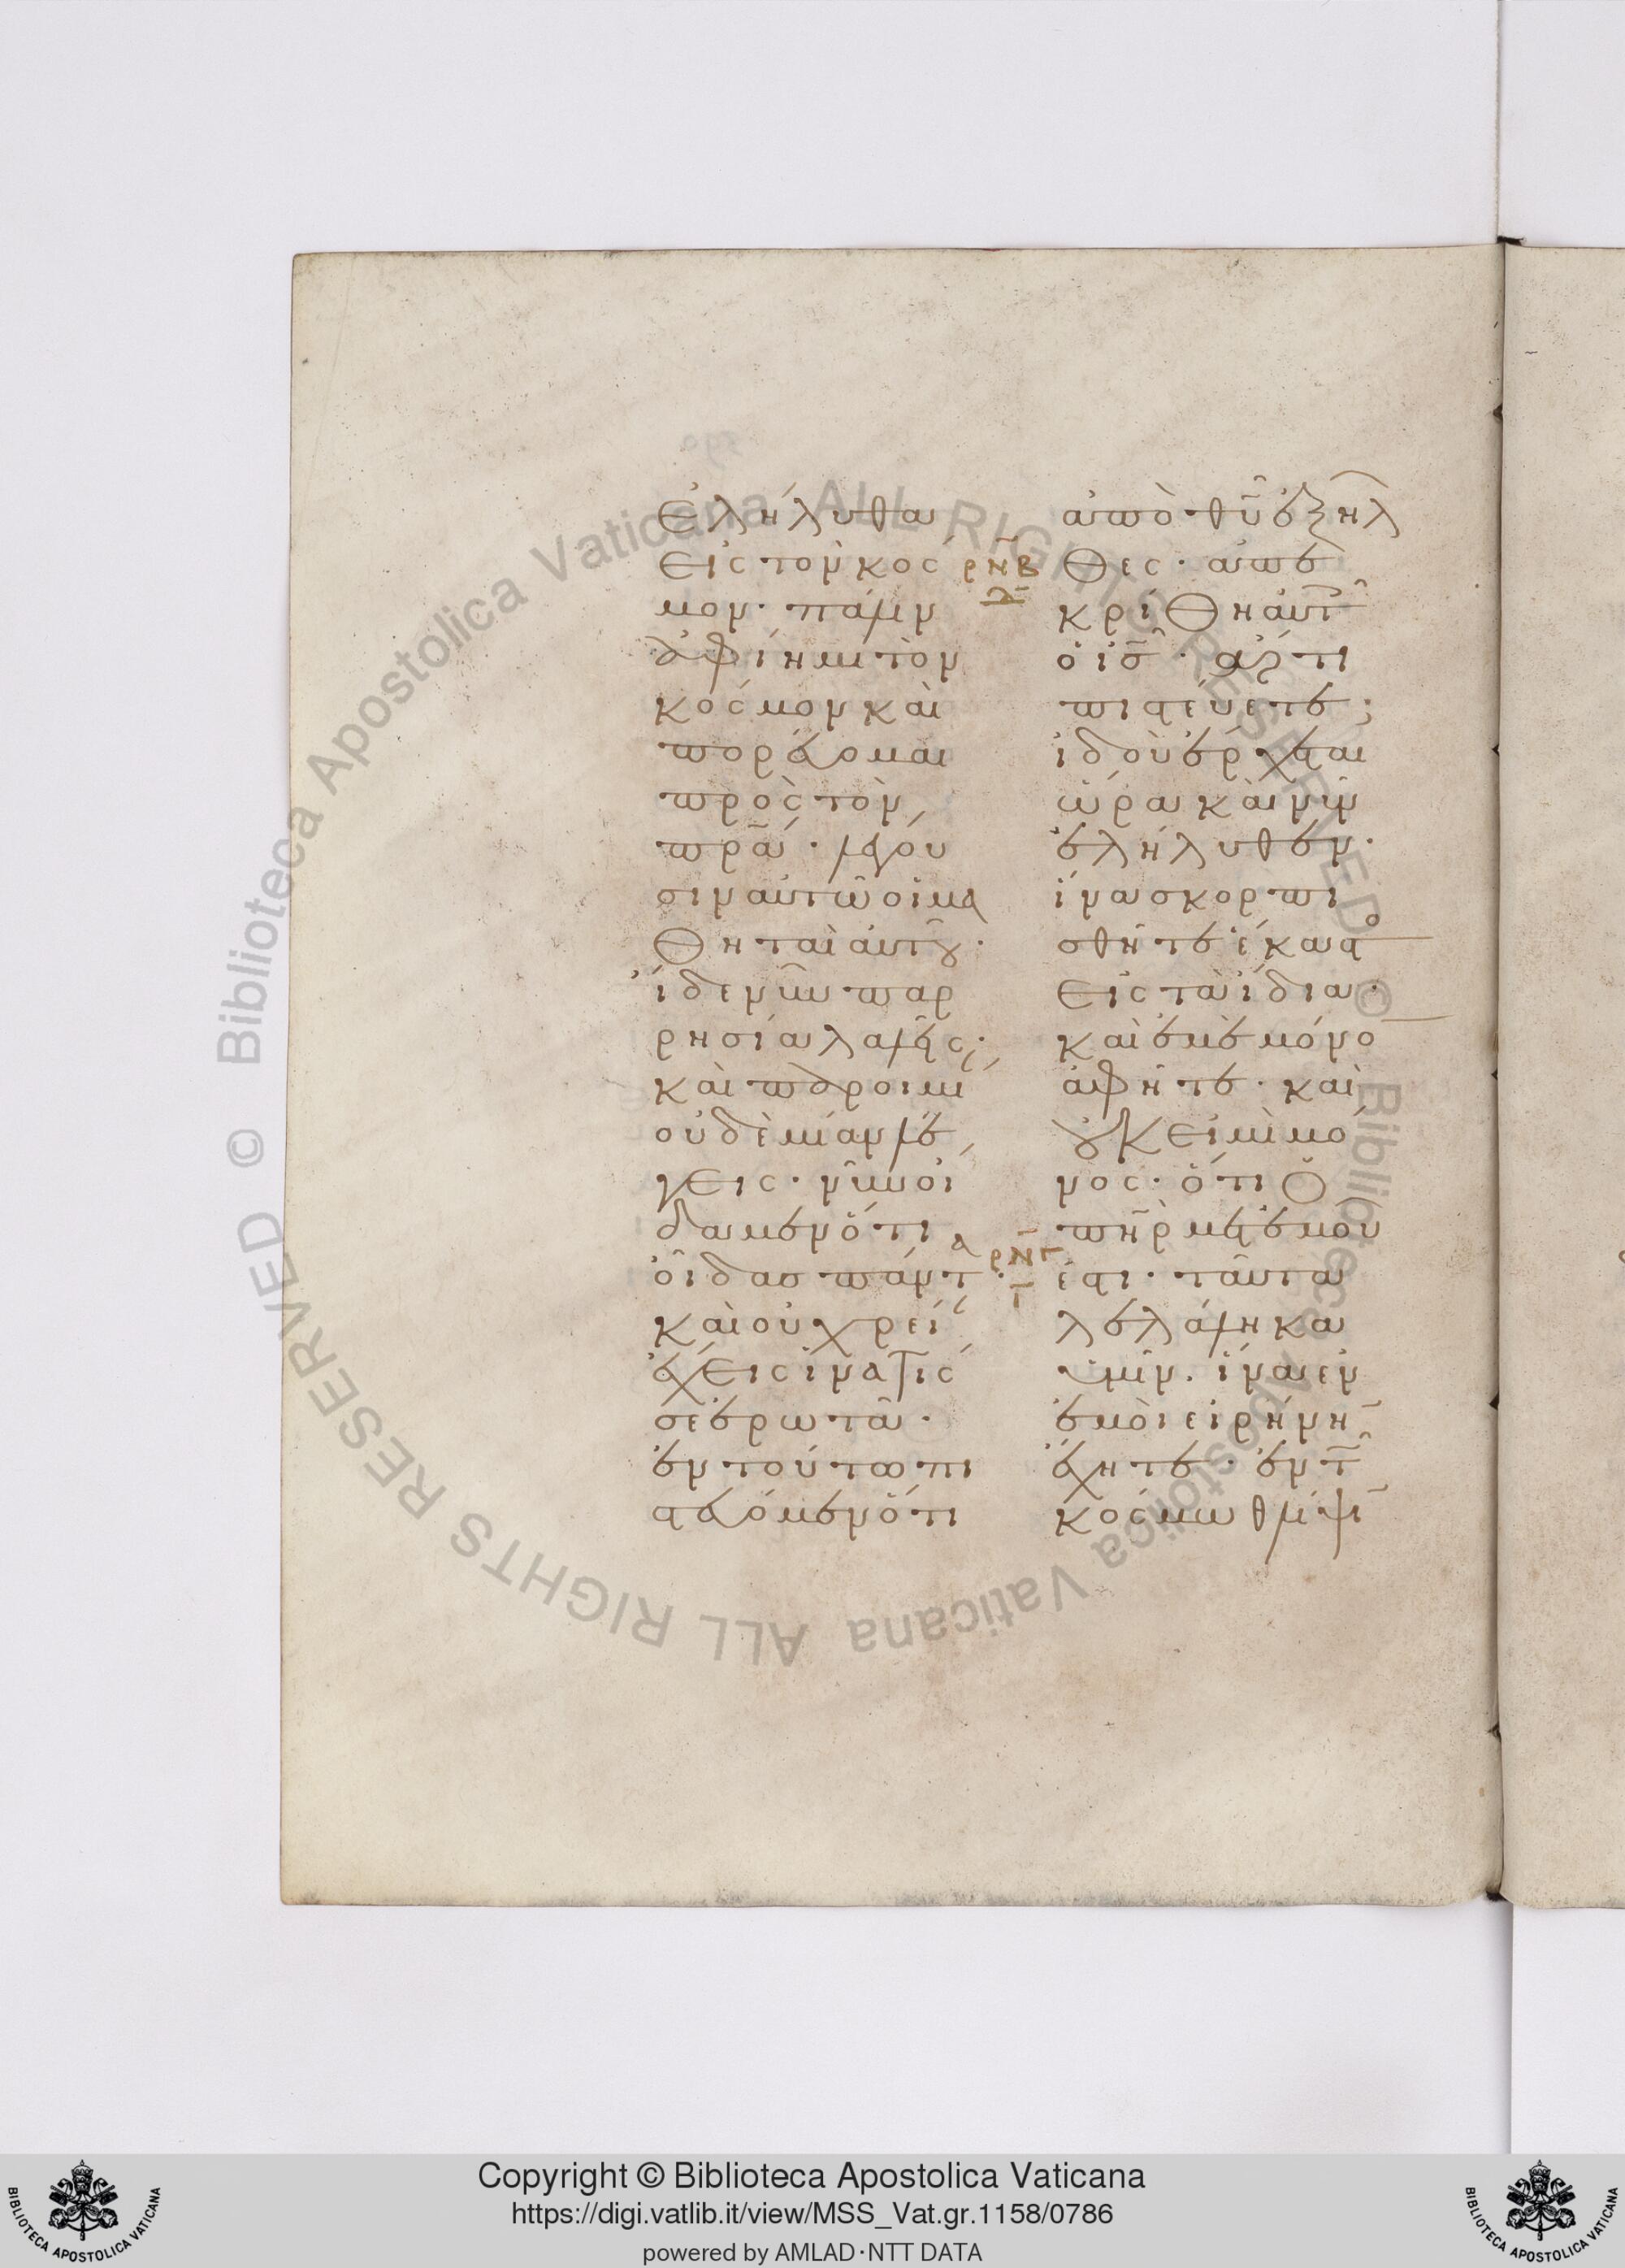 ἐλήλυθα
εἰς τὸν κόσ
μον· πάλιν
ἀφίημι τὸν
κόσμον καὶ
πορεύομαι
πρὸς τὸν
πρ̅α̅· λέγου
σιν αὐτῶ οἱ μα
θηταὶ αὐτοῦ·
ἴδε νῦν παρ
ρησία λαλεῖς·
καὶ παροιμί
οὐδεμίαν λέ
γεις· νῦν οἴ
δαμεν ὅτι
οἶδας πάντα·
καὶ οὐ χρεί
ἔχεις ἵνα τίς
σε ἐρωτᾶ·
ἐν τούτω πι
στεύομεν ὅτι
ἀπὸ θ̅υ̅ ἐξῆλ
ρν̅β̅ θες· ἀπε
δ̅ κρίθη αὐτ
ὁ ι̅σ̅· ἄρτι
πιστεύετε;
ἰδοὺ ἔρχεται
ὥρα καὶ νῦν
ἐλήλυθεν·
ἵνα σκορπι
σθῆτε ἕκαστο
εἰς τὰ ἴδια·
καὶ ἐμὲ μόνο
ἀφῆτε· καὶ
οὐκ εἰμὶ μό
νος· ὅτι ὁ
π̅η̅ρ̅ μετ' ἐμοῦ
ρν̅γ̅ ἐστι· ταῦτα
ι̅ λελάληκα
ὑμῖν· ἵνα ἐν
ἐμοὶ εἰρήνη
ἔχητε· ἐν τ
κόσμω θλίψι
Copyright © Biblioteca Apostolica Vaticana
https://digi.vatlib.it/view/MSS_Vat.gr.1158/0786
powered by AMLAD·NTT DATA
BIBLIOTECA APOSTOLICA VATICANA
BIBLIOTECA APOSTOLICA VATICANA
© Biblioteca Apostolica Vaticana ALL RIGHTS RESERVED
© Biblioteca Apostolica Vaticana ALL RIGHTS RESERVED